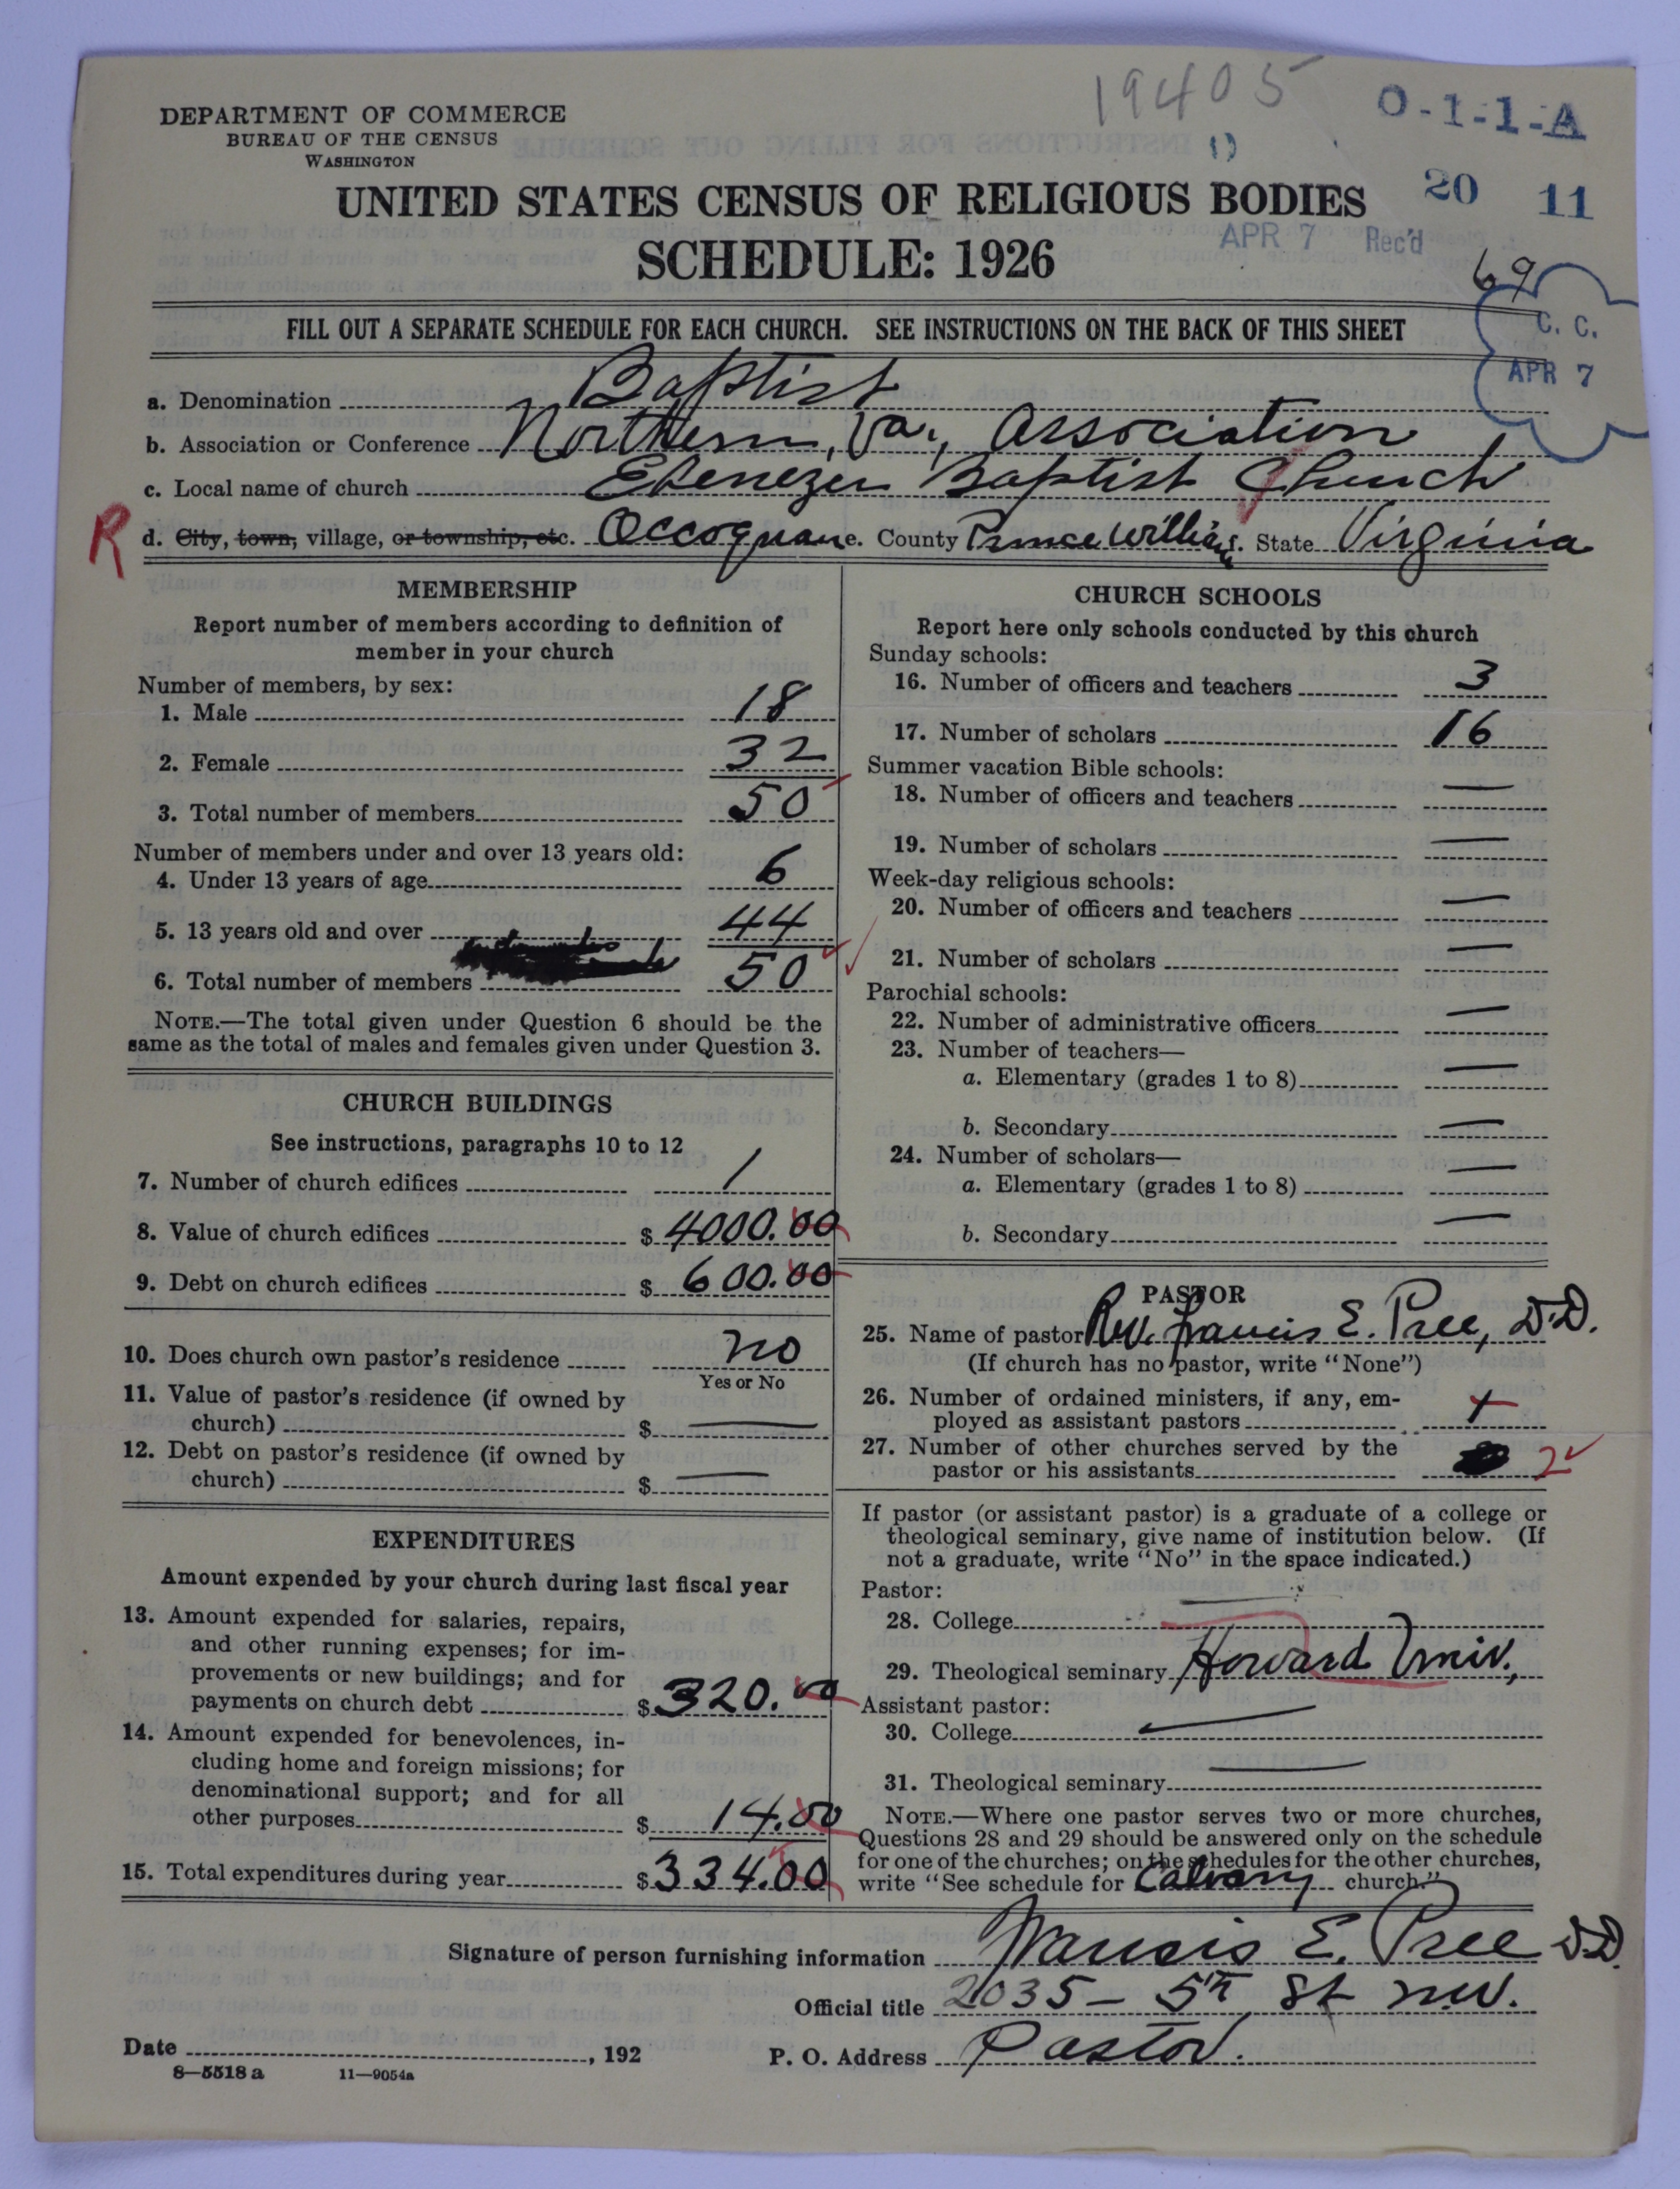 19405
O-1-1-A
DEPARTMENT OF COMMERCE
BUREAU OF THE CENSUS
WASHINGTON
UNITED STATES CENSUS OF RELIGIOUS BODIES
20 11
APR 7 Rec'd
SCHEDULE: 1926
69
C. C.
APR 7
FILL OUT A SEPARATE SCHEDULE FOR EACH CHURCH. SEE INSTRUCTIONS ON THE BACK OF THIS SHEET
a. Denomination Baptist
b. Association or Conference Northern, Va., Association
c. Local name of church Ebenezer Baptist Church
R d. City, town, village, or township, etc. Occoquan e. County Prince William f. State Virginia
MEMBERSHIP
Report number of members according to definition of
member in your church
Number of members, by sex:
1. Male 18
2. Female 32
3. Total number of members 50
Number of members under and over 13 years old:
4. Under 13 years of age 6
5. 13 years old and over 44
6. Total number of members 50
NOTE.—The total given under Question 6 should be the
same as the total of males and females given under Question 3.
CHURCH BUILDINGS
See instructions, paragraphs 10 to 12
7. Number of church edifices 1
8. Value of church edifices $ 4000.00
9. Debt on church edifices $ 600.00
10. Does church own pastor's residence no
Yes or No
11. Value of pastor's residence (if owned by
church) $ —
12. Debt on pastor's residence (if owned by
church) $ —
EXPENDITURES
Amount expended by your church during last fiscal year
13. Amount expended for salaries, repairs,
and other running expenses; for im-
provements or new buildings; and for
payments on church debt $ 320.00
14. Amount expended for benevolences, in-
cluding home and foreign missions; for
denominational support; and for all
other purposes $ 14.00
15. Total expenditures during year $ 334.00
CHURCH SCHOOLS
Report here only schools conducted by this church
Sunday schools:
16. Number of officers and teachers 3
17. Number of scholars 16
Summer vacation Bible schools:
18. Number of officers and teachers —
19. Number of scholars —
Week-day religious schools:
20. Number of officers and teachers —
21. Number of scholars —
Parochial schools:
22. Number of administrative officers —
23. Number of teachers—
a. Elementary (grades 1 to 8) —
b. Secondary —
24. Number of scholars—
a. Elementary (grades 1 to 8) —
b. Secondary —
PASTOR
25. Name of pastor Rev. Francis E. Pree, D.D.
(If church has no pastor, write "None")
26. Number of ordained ministers, if any, em-
ployed as assistant pastors 1
27. Number of other churches served by the
pastor or his assistants 2
If pastor (or assistant pastor) is a graduate of a college or
theological seminary, give name of institution below. (If
not a graduate, write "No" in the space indicated.)
Pastor:
28. College —
29. Theological seminary Howard Univ.,
Assistant pastor:
30. College —
31. Theological seminary —
NOTE.—Where one pastor serves two or more churches,
Questions 28 and 29 should be answered only on the schedule
for one of the churches; on the schedules for the other churches,
write "See schedule for Calvary church."
Signature of person furnishing information Francis E. Pree D.D.
Official title 2035 – 5th St N.W.
Date , 192 P. O. Address Pastor.
8—5518 a 11—9054a